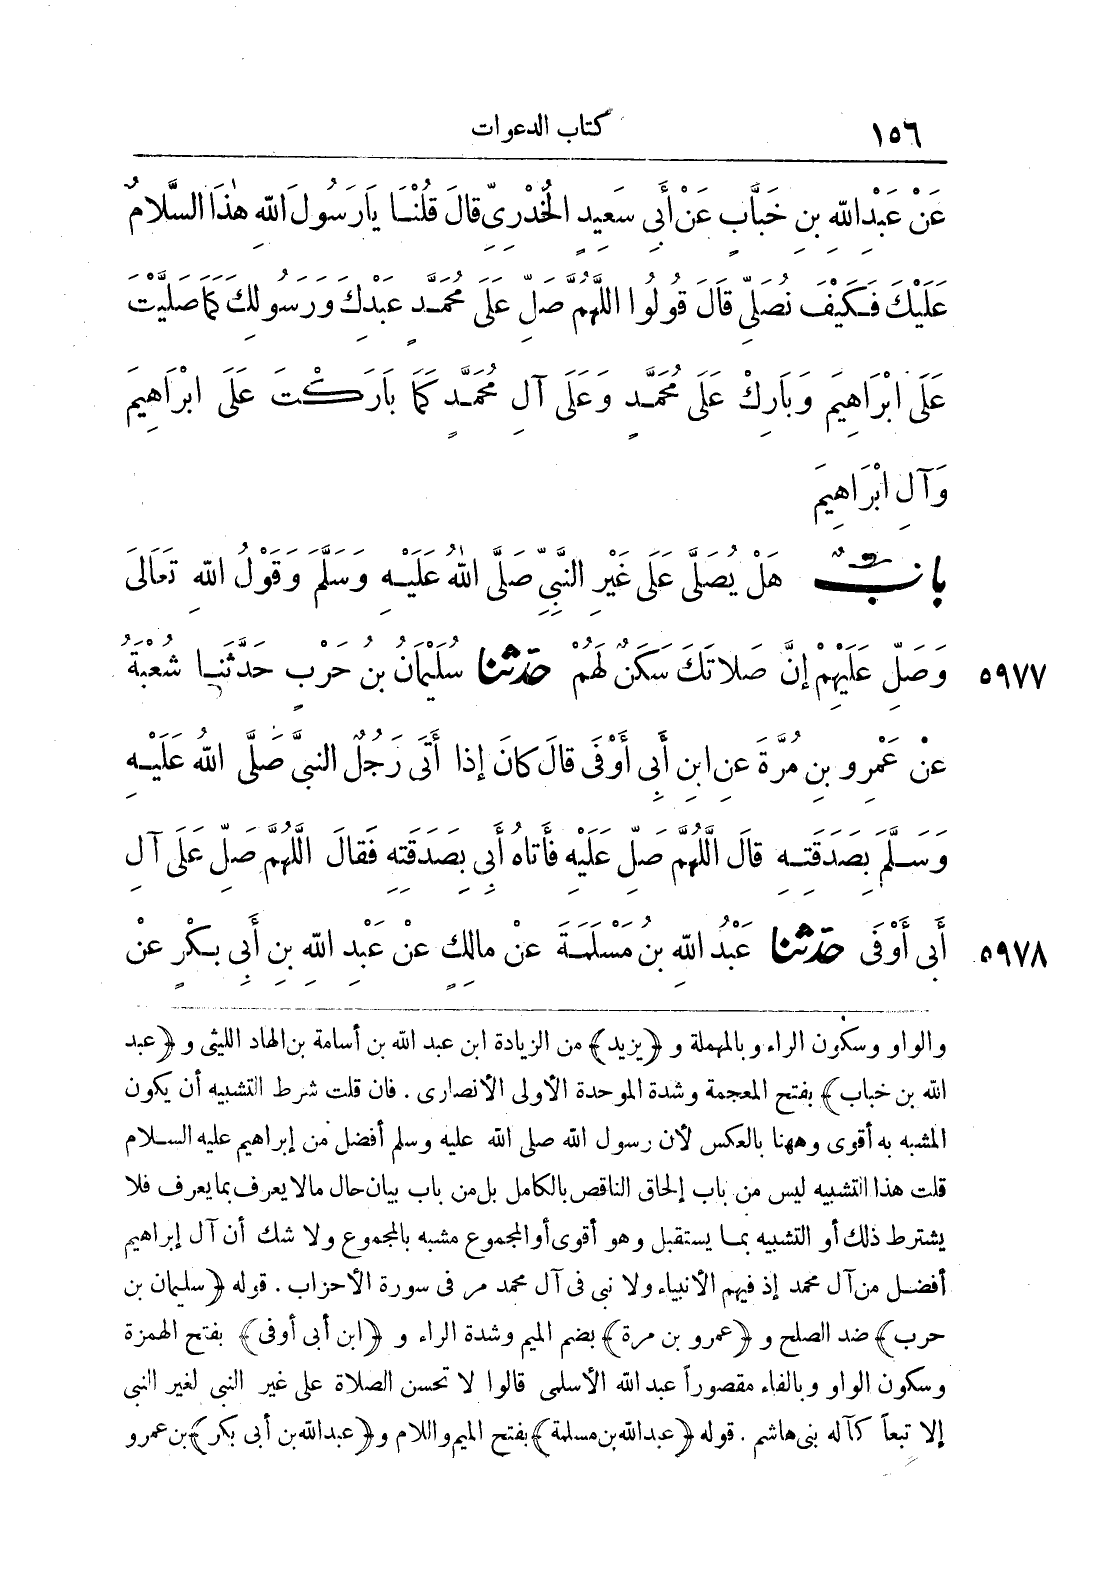 ١٥٦ كتاب الدعوات
عَنْ عَبْدِ اللهِ بنِ خَبَّابٍ عَنْ أَبِي سَعِيدٍ الخُدْرِيِّ قالَ قُلْنَا يَارَسُولَ اللهِ هٰذَا السَّلَامُ
عَلَيْكَ فَكَيْفَ نُصَلِّي قَالَ قُولُوا اللَّهُمَّ صَلِّ عَلَى مُحَمَّدٍ عَبْدِكَ وَرَسُولِكَ كَمَا صَلَّيْتَ
عَلَى ابْرَاهِيمَ وَبَارِكْ عَلَى مُحَمَّدٍ وَعَلَى آلِ مُحَمَّدٍ كَمَا بَارَكْتَ عَلَى ابْرَاهِيمَ
وَآلِ ابْرَاهِيمَ
بابٌ هَلْ يُصَلَّى عَلَى غَيْرِ النَّبِيِّ صَلَّى اللهُ عَلَيْهِ وَسَلَّمَ وَقَوْلُ اللهِ تَعَالَى
وَصَلِّ عَلَيْهِمْ إنَّ صَلَاتَكَ سَكَنٌ لَهُمْ حَدَّثَنَا سُلَيْمَانُ بنُ حَرْبٍ حَدَّثَنَا شُعْبَةُ ٥٩٧٧
عنْ عَمْرِو بنِ مُرَّةَ عنِ ابنِ أَبِي أَوْفَى قالَ كانَ إذا أَتَى رَجُلٌ النبيَّ صَلَّى اللهُ عَلَيْهِ
وَسَلَّمَ بِصَدَقَتِهِ قالَ اللَّهُمَّ صَلِّ عَلَيْهِ فَأَتاهُ أَبِي بِصَدَقَتِهِ فَقالَ اللَّهُمَّ صَلِّ عَلَى آلِ
أَبِي أَوْفَى حَدَّثَنَا عَبْدُ اللهِ بنُ مَسْلَمَةَ عنْ مالِكٍ عنْ عَبْدِ اللهِ بنِ أَبِي بكْرٍ عنْ ٥٩٧٨
والواو وسكون الراء وبالمهملة و ﴿يزيد﴾ من الزيادة ابن عبد الله بن أسامة بن الهاد الليثى و ﴿عبد
الله بن خباب﴾ بفتح المعجمة وشدة الموحدة الأولى الأنصارى . فان قلت شرط التشبيه أن يكون
المشبه به أقوى وههنا بالعكس لأن رسول الله صلى الله عليه وسلم أفضل من إبراهيم عليه السلام
قلت هذا التشبيه ليس من باب إلحاق الناقص بالكامل بل من باب بيان حال مالا يعرف بما يعرف فلا
يشترط ذلك أو التشبيه بما يستقبل وهو أقوى أو المجموع مشبه بالمجموع ولا شك أن آل إبراهيم
أفضل من آل محمد إذ فيهم الأنبياء ولا نبى فى آل محمد مر فى سورة الأحزاب . قوله ﴿سليمان بن
حرب﴾ ضد الصلح و ﴿عمرو بن مرة﴾ بضم الميم وشدة الراء و ﴿ابن أبى أوفى﴾ بفتح الهمزة
وسكون الواو وبالفاء مقصوراً عبد الله الأسلمى قالوا لا تحسن الصلاة على غير النبى لغير النبى
إلا تبعاً كآله بنى هاشم . قوله ﴿عبد الله بن مسلمة﴾ بفتح الميم واللام و ﴿عبد الله بن أبى بكر﴾ بن عمرو